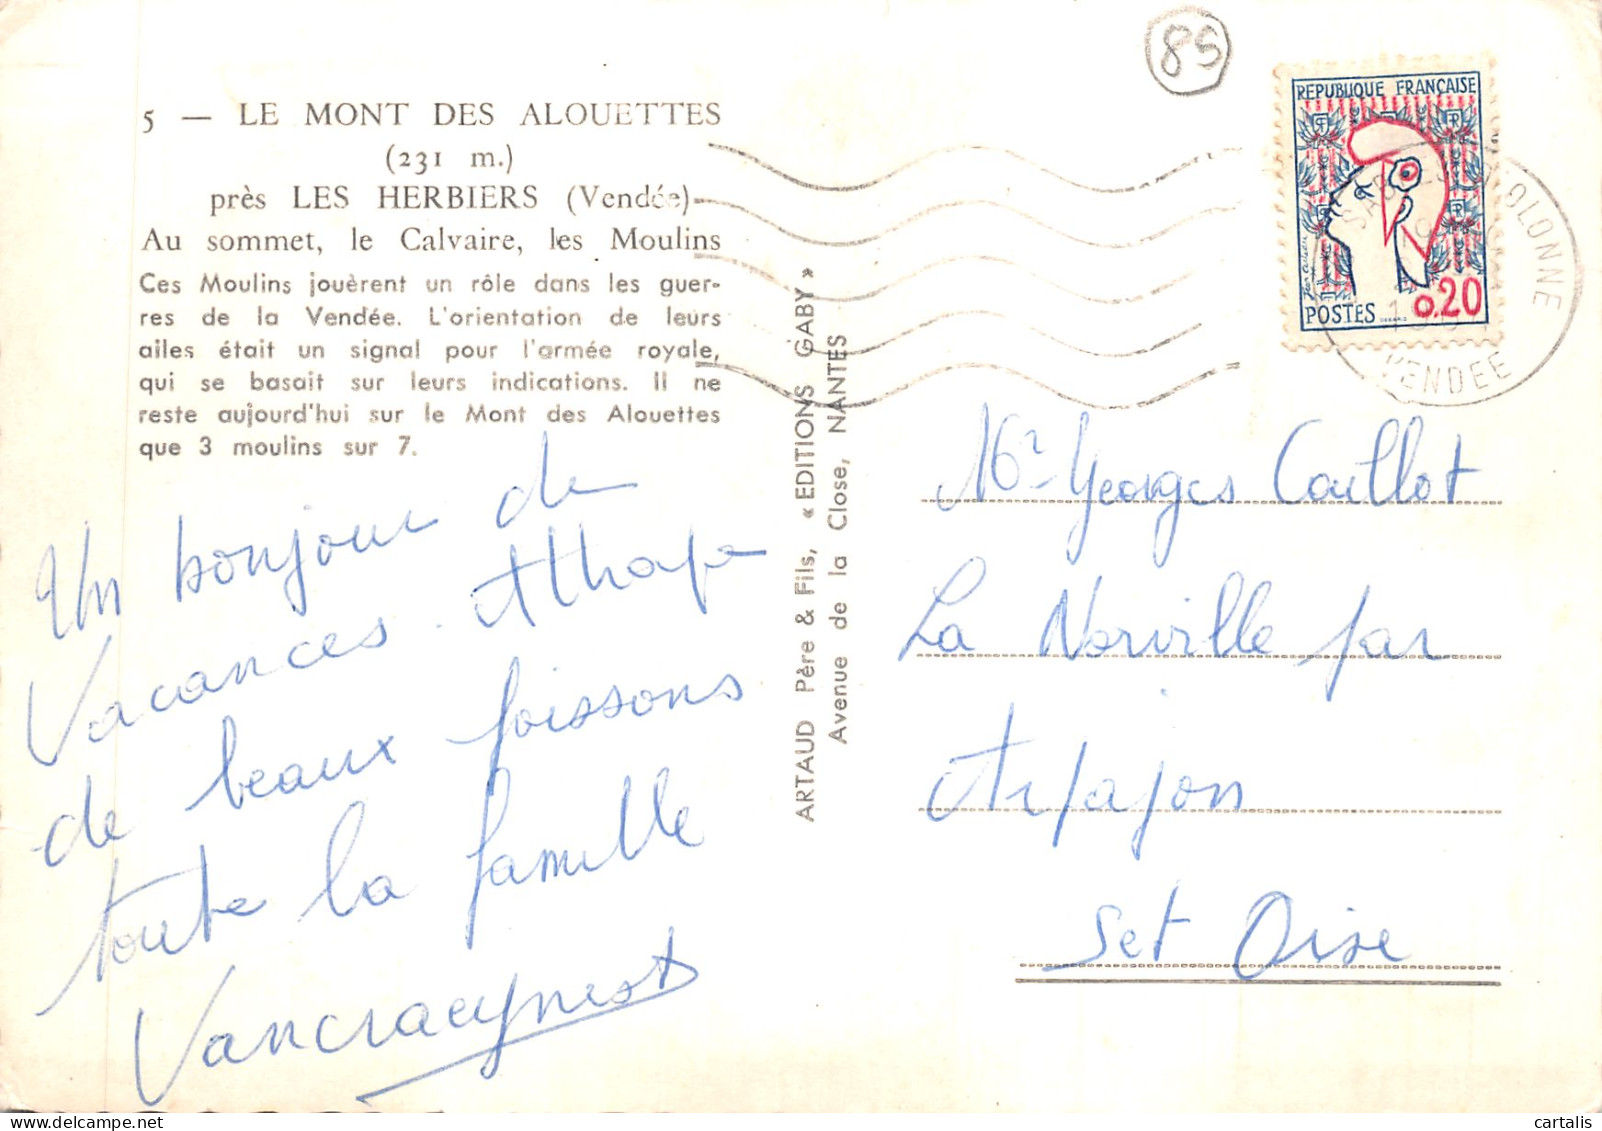 85
5 — LE MONT DES ALOUETTES
(231 m.)
près LES HERBIERS (Vendée)
Au sommet, le Calvaire, les Moulins
Ces Moulins jouèrent un rôle dans les guer-
res de la Vendée. L'orientation de leurs
ailes était un signal pour l'armée royale,
qui se basait sur leurs indications. Il ne
reste aujourd'hui sur le Mont des Alouettes
que 3 moulins sur 7.
Un bonjour de
Vacances. Attrape
de beaux poissons
toute la famille
Vancraeynest
ARTAUD Père & Fils, « EDITIONS GABY »
Avenue de la Close, NANTES
REPUBLIQUE FRANÇAISE
POSTES 0.20
OLONNE
VENDEE
Mr Georges Caillot
La Norville par
Arpajon
S et Oise
cartalis